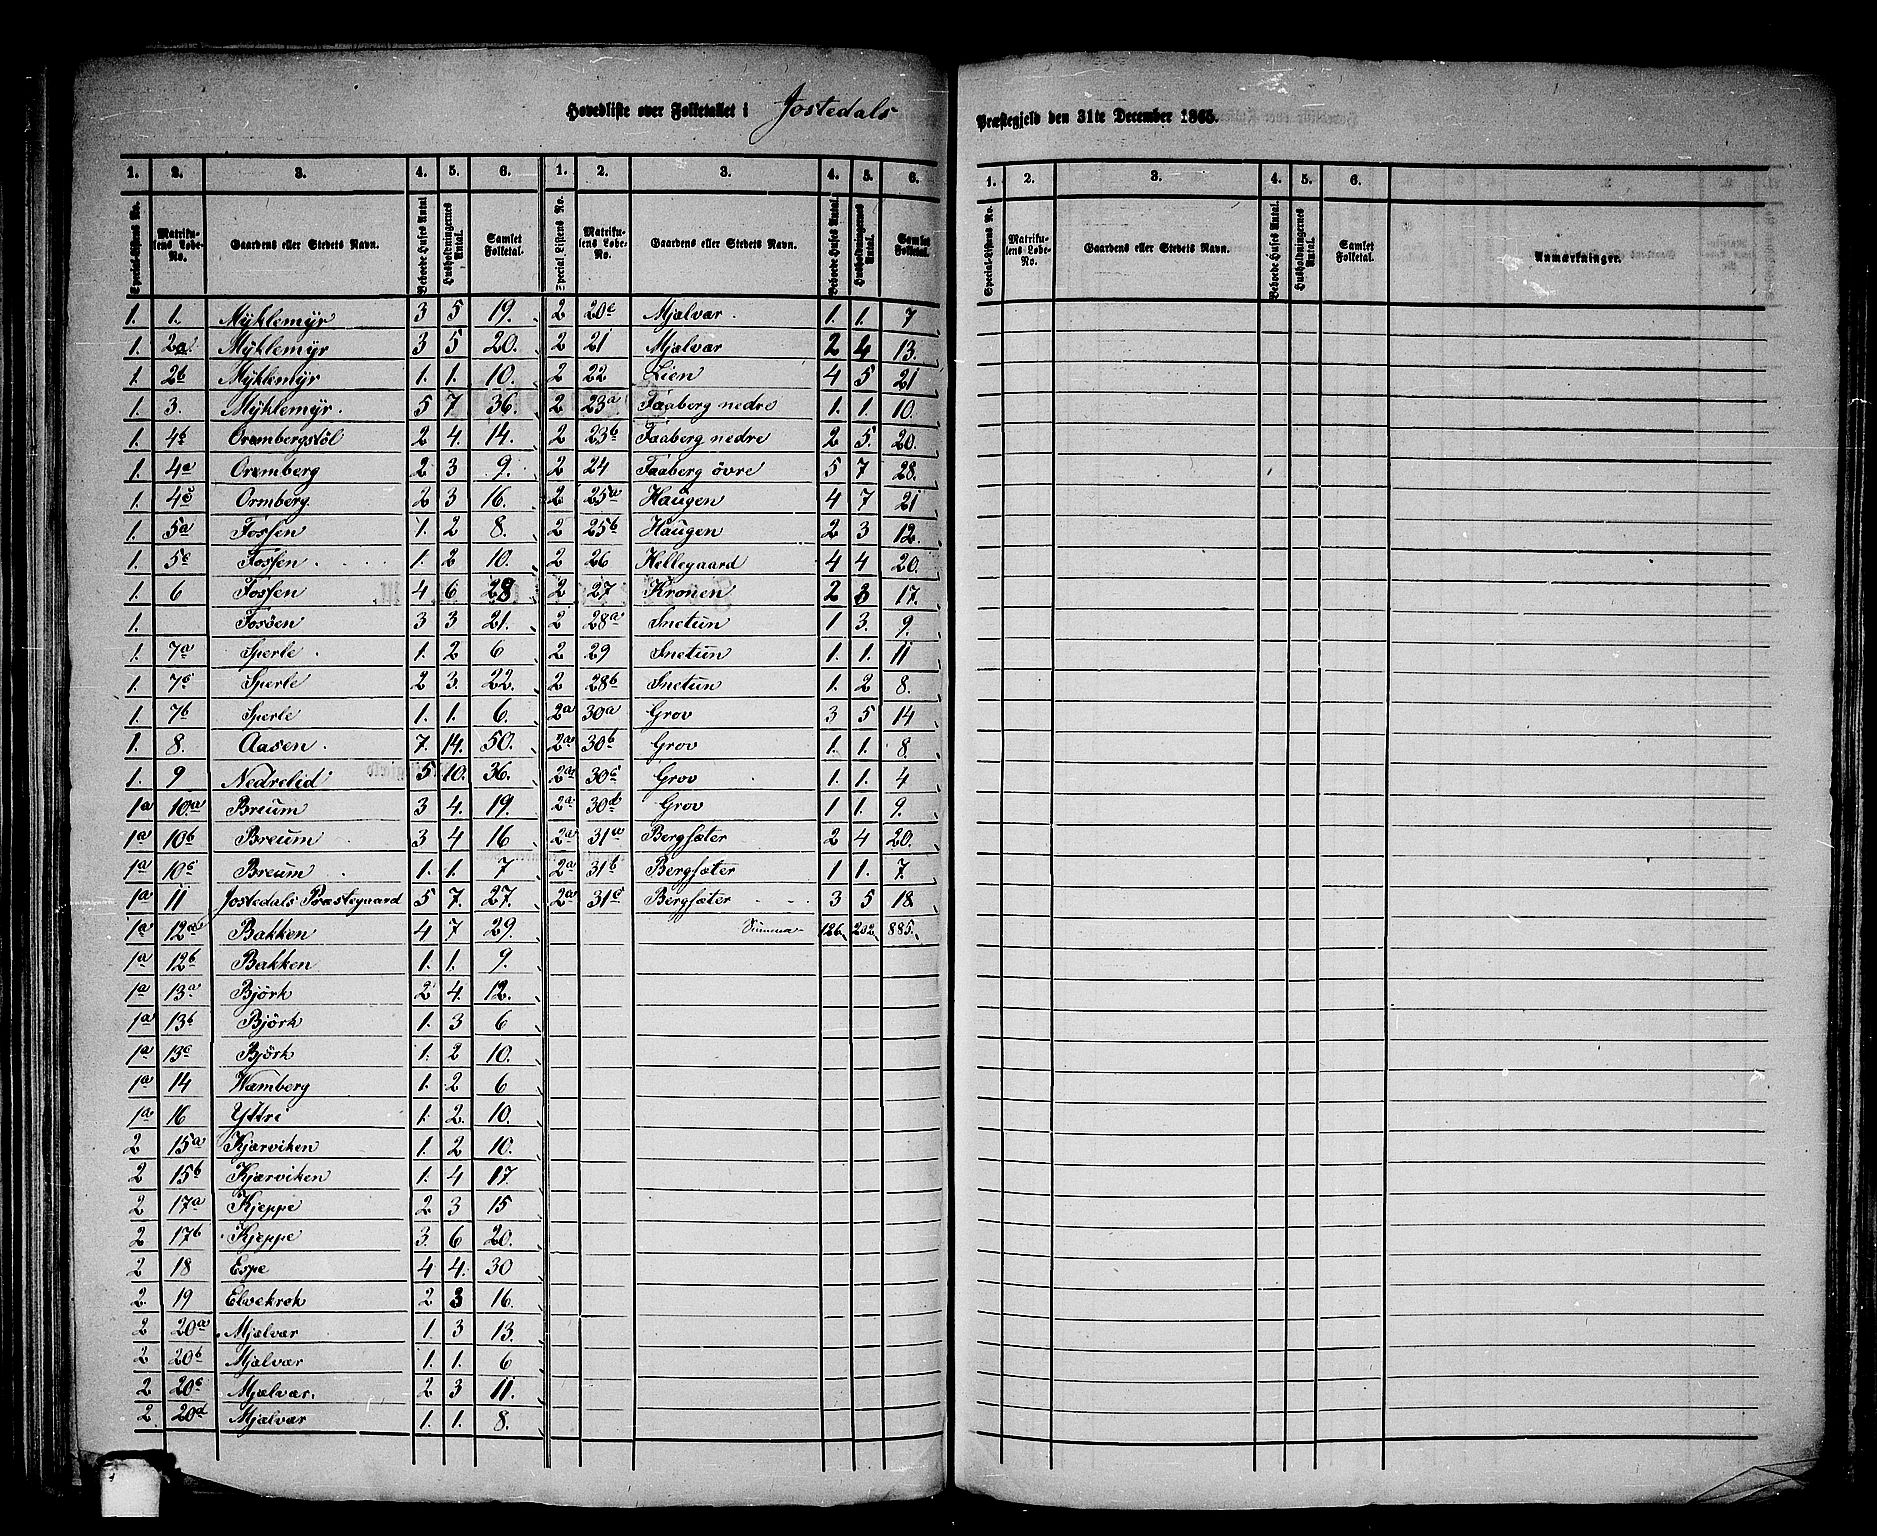 Hovedliste over Folketallet i Jostedals Præstegjeld den 31te December 1865.
1. 2. 3. 4. 5. 6. 1. 2. 3. 4. 5. 6.
Special-Listens No. Matrikulens Løbe-No. Gaardens eller Stedets Navn. Beboede Huses Antal Husholdningernes Antal. Samlet Folketal. Special-Listens No. Matrikulens Løbe-No. Gaardens eller Stedets Navn. Beboede Huses Antal. Husholdningernes Antal. Samlet Folketal.
1. 1. Myklemyr 3 5 19.
1. 2a. Myklemyr 3 5 20.
1. 2b Myklemyr 1. 1. 10.
1. 3. Myklemyr. 5 7 36.
1. 4b Ormbergstöl 2 4. 14.
1. 4a Ormberg 2 3 9.
1. 4c Ormberg 2 3 16.
1. 5a Fossen 1. 2 8.
1. 5c Fossen 1. 2 10.
1. 6 Fossen 4 6 28
1. Fosöen 3 3 21.
1. 7a Sperle 1. 2 6
1. 7c Sperle 2 3. 22.
1. 7b Sperle 1. 1. 6.
1. 8. Aasen. 7. 14. 50.
1. 9 Nedrelid 5 10. 36.
1a 10.a Breum 3 4. 19.
1a 10b Breum 3 4 16
1a 10c Breum 1. 1. 7
1a 11 Jostedals Præstegaard 5 7. 27.
1a 12a Bakken 4 7 29.
1a 12b Bakken 1. 1. 9.
1a 13a Björk 2 4. 12.
1a 13b Björk 1. 3 6
1a 13c Björk 1. 2 10.
1a 14 Vamberg 1. 2 6
1a 16 Yttri 1. 2. 10.
2 15a Kjærviken 1. 2 10.
2 15b Kjærviken 1. 4 17.
2 17a Kjeppe 2 3 15
2 17b Kjeppe 3. 6 20.
2 18 Espe 4 4. 30
2. 19 Elvekrok 2 3 16.
2 20a Mjelvær 1. 3 13.
2 20b Mjelvær 1. 1. 6
2 20c Mjelvær. 2 3 11.
2 20d Mjelvær 1. 1. 8.
2 20e Mjelvær. 1. 1. 7
2 21 Mjelvær 2 4 13.
2 22 Lien 4 5 21
2 23a Faaberg nedre 1. 1. 10.
2 23b Faaberg nedre 2 5. 20.
2 24 Faaberg övre 5 7 28.
2 25a Haugen 4 7 21
2 25b Haugen 2 3 12.
2 26 Hellegaard 4 4 20.
2 27 Kronen 2 3 17.
2 28a Snetun 1 3. 9.
2 29 Snetun 1. 1. 11
2 28b Snetun 1 2 8.
2a 30a Grov 3 5 14
2a 30b Grov 1. 1. 8.
2a 30c Grov 1. 1. 4
2a 30d Grov 1. 1. 9.
2a 31a Bergsæter 2 4 20.
2a 31b Bergsæter 1 1. 7.
2a 31c Bergsæter 3 5 18.
Summa 126. 202. 885.
1. 2. 3. 4. 5. 6.
Special-Listens No. Matrikulens Løbe-No. Gaardens eller Stedets Navn. Beboede Huses Antal. Husholdningernes Antal. Samlet Folketal. Anmærkninger.